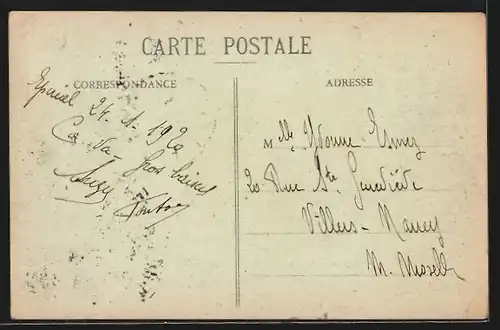 CARTE POSTALE
CORRESPONDANCE
ADRESSE
Epinal 24-1-1920
Ca va Gros baisers
Suzy
Mlle Yvonne
20 Rue Ste Geneviève
Villers-Nancy
M. Moselle